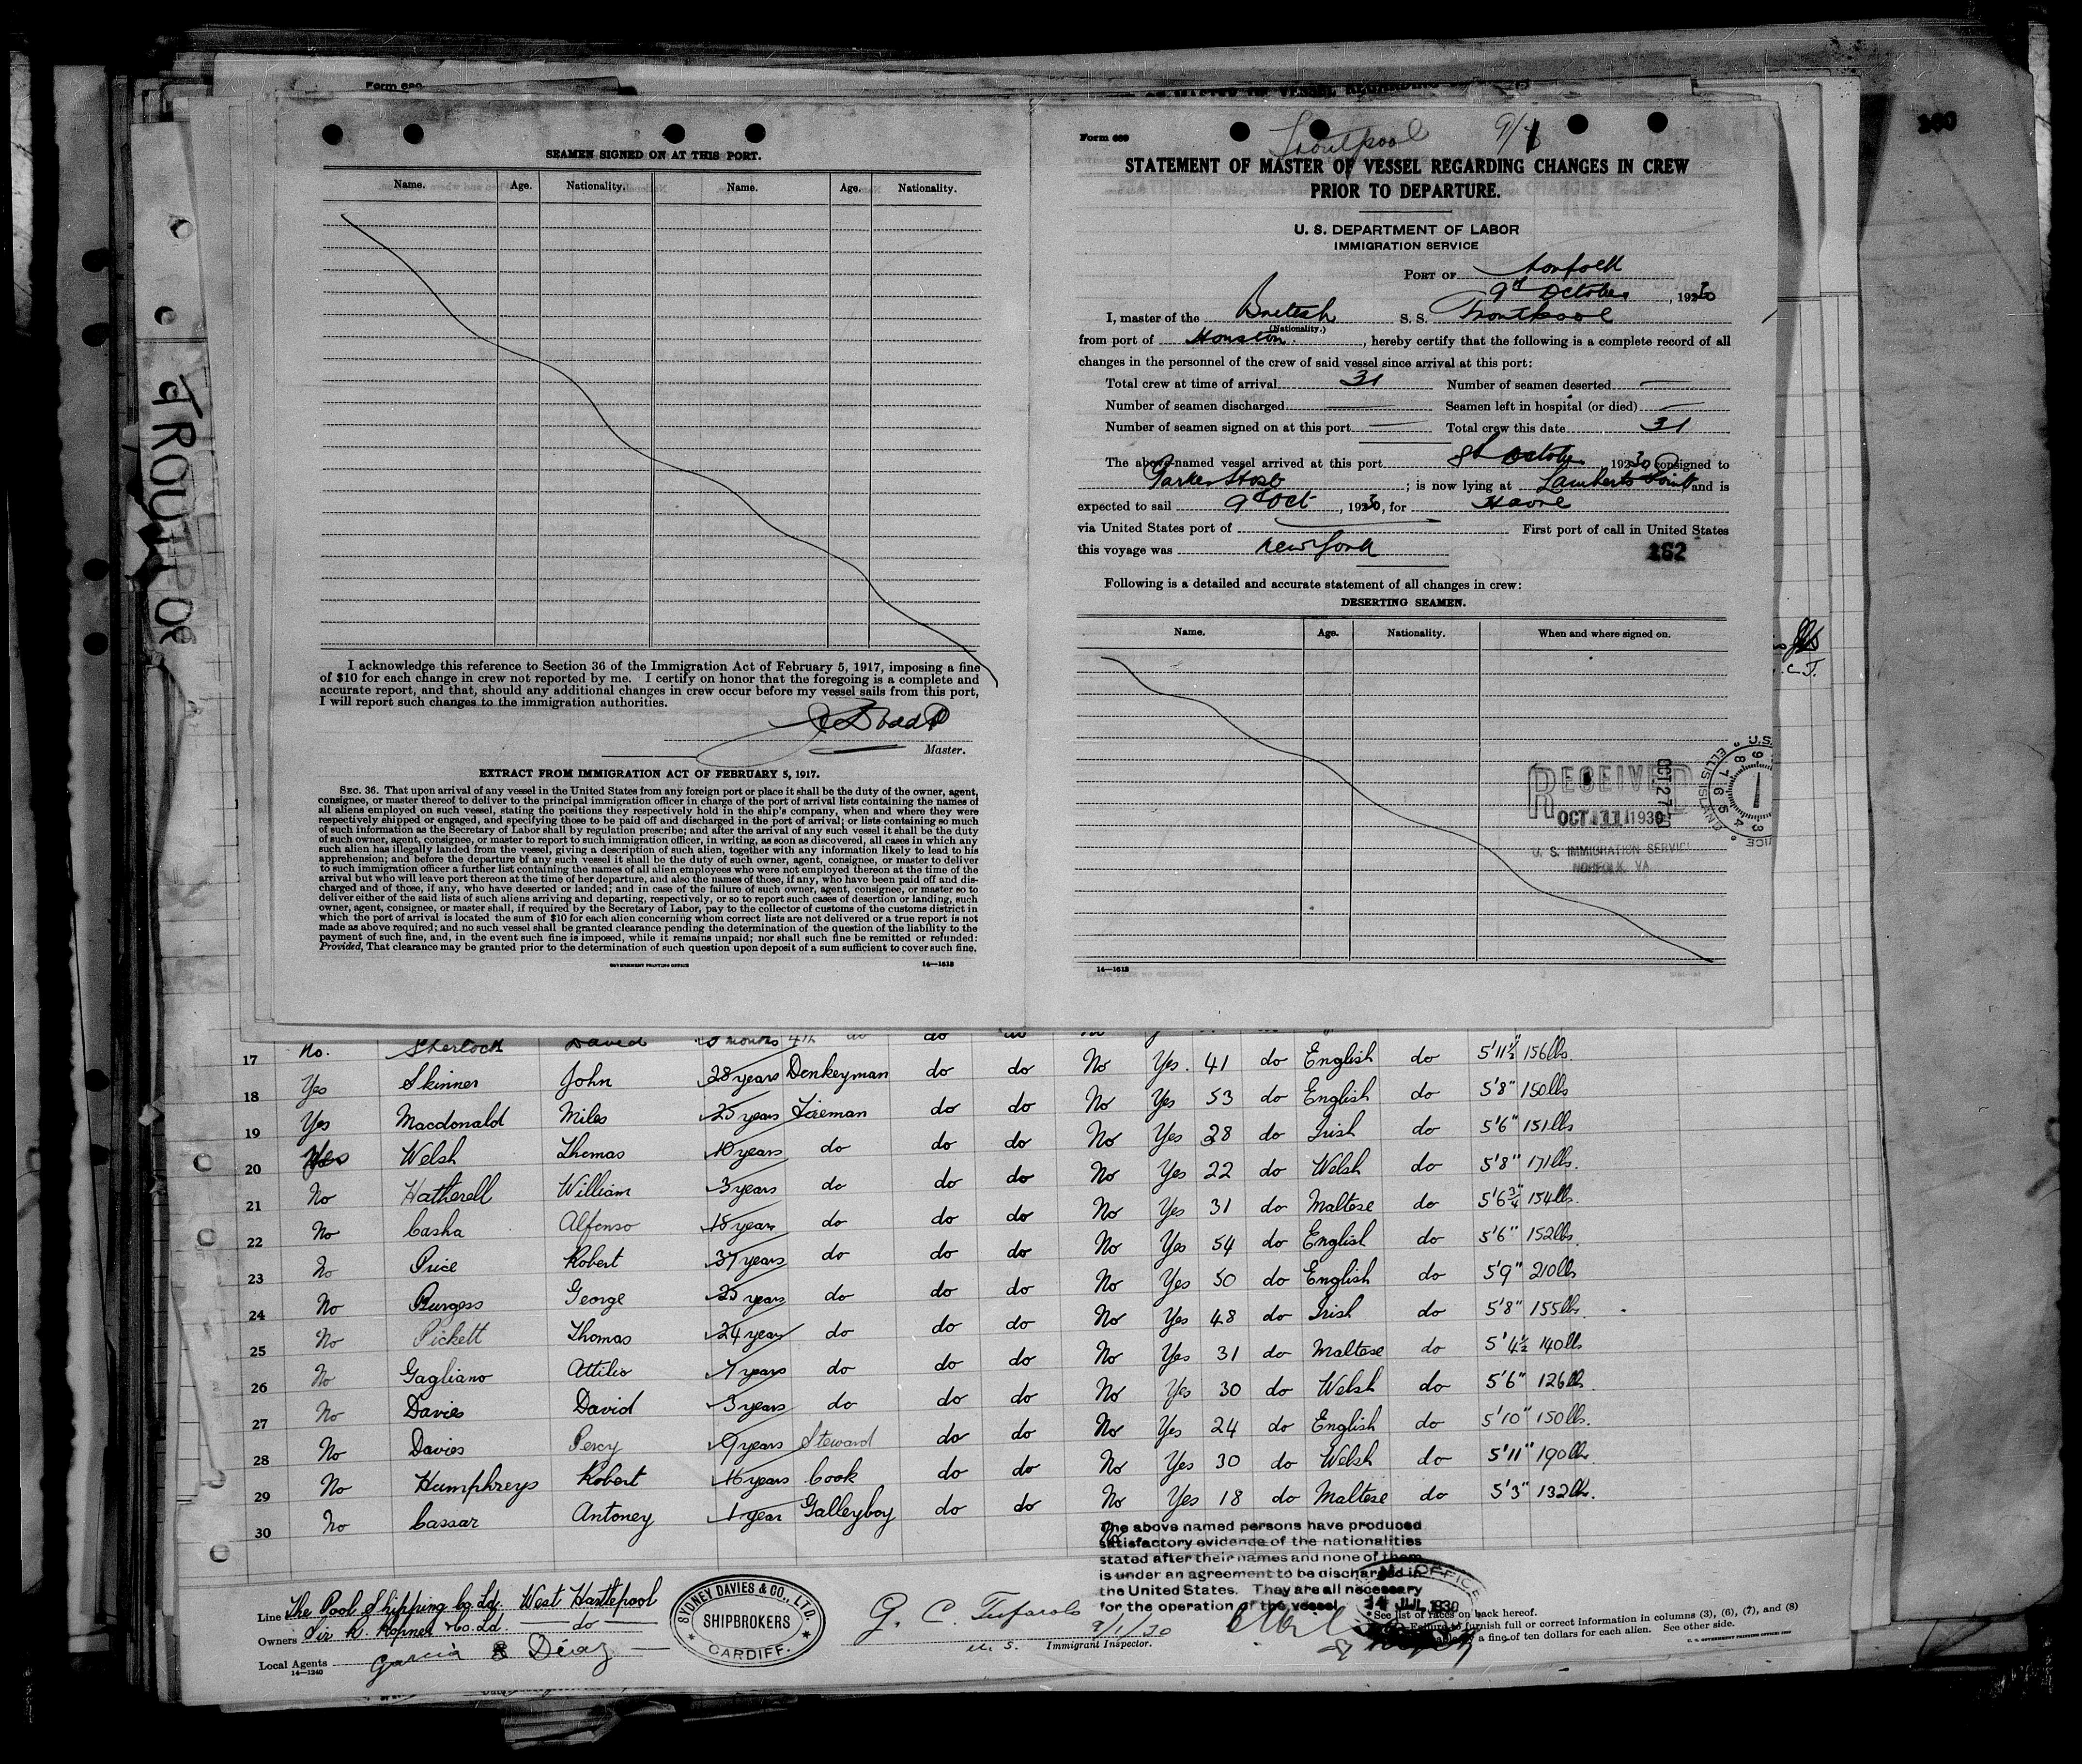 Form 689
160
TROUTPOOL
SEAMEN SIGNED ON AT THIS PORT.
Name. Age. Nationality. Name. Age. Nationality.
I acknowledge this reference to Section 36 of the Immigration Act of February 5, 1917, imposing a fine
of $10 for each change in crew not reported by me. I certify on honor that the foregoing is a complete and
accurate report, and that, should any additional changes in crew occur before my vessel sails from this port,
I will report such changes to the immigration authorities.
Master.
EXTRACT FROM IMMIGRATION ACT OF FEBRUARY 5, 1917.
SEC. 36. That upon arrival of any vessel in the United States from any foreign port or place it shall be the duty of the owner, agent,
consignee, or master thereof to deliver to the principal immigration officer in charge of the port of arrival lists containing the names of
all aliens employed on such vessel, stating the positions they respectively hold in the ship's company, when and where they were
respectively shipped or engaged, and specifying those to be paid off and discharged in the port of arrival; or lists containing so much
of such information as the Secretary of Labor shall by regulation prescribe; and after the arrival of any such vessel it shall be the duty
of such owner, agent, consignee, or master to report to such immigration officer, in writing, as soon as discovered, all cases in which any
such alien has illegally landed from the vessel, giving a description of such alien, together with any information likely to lead to his
apprehension; and before the departure of any such vessel it shall be the duty of such owner, agent, consignee, or master to deliver
to such immigration officer a further list containing the names of all alien employees who were not employed thereon at the time of the
arrival but who will leave port thereon at the time of her departure, and also the names of those, if any, who have been paid off and dis-
charged and of those, if any, who have deserted or landed; and in case of the failure of such owner, agent, consignee, or master so to
deliver either of the said lists of such aliens arriving and departing, respectively, or so to report such cases of desertion or landing, such
owner, agent, consignee, or master shall, if required by the Secretary of Labor, pay to the collector of customs of the customs district in
which the port of arrival is located the sum of $10 for each alien concerning whom correct lists are not delivered or a true report is not
made as above required; and no such vessel shall be granted clearance pending the determination of the question of the liability to the
payment of such fine, and, in the event such fine is imposed, while it remains unpaid; nor shall such fine be remitted or refunded:
Provided, That clearance may be granted prior to the determination of such question upon deposit of a sum sufficient to cover such fine.
GOVERNMENT PRINTING OFFICE 14—1613
Form 689 Troutpool
STATEMENT OF MASTER OF VESSEL REGARDING CHANGES IN CREW
PRIOR TO DEPARTURE.
U. S. DEPARTMENT OF LABOR
IMMIGRATION SERVICE
PORT OF Norfolk
9th October, 1930
I, master of the British S. S. Troutpool
(Nationality.)
from port of Houston, hereby certify that the following is a complete record of all
changes in the personnel of the crew of said vessel since arrival at this port:
Total crew at time of arrival 31 Number of seamen deserted —
Number of seamen discharged — Seamen left in hospital (or died) —
Number of seamen signed on at this port — Total crew this date 31
The above-named vessel arrived at this port 8th October 1930, consigned to
Parker Host; is now lying at Lamberts Point, and is
expected to sail 9th Oct, 1930, for Havre
via United States port of — First port of call in United States
this voyage was New York
162
Following is a detailed and accurate statement of all changes in crew:
DESERTING SEAMEN.
Name. Age. Nationality. When and where signed on.
RECEIVED
OCT 11 1930
U. S. IMMIGRATION SERVICE
NORFOLK, VA.
OCT 27
ELLIS ISLAND
14—1613
17 No. Sherlock David months 4th do do do
18 Yes Skinner John 28 years Donkeyman do do No Yes. 41 do English do 5'11½" 156lbs.
19 Yes Macdonald Miles 25 years Fireman do do No Yes 53 do English do 5'8" 150lbs
20 Welsh Thomas 10 years do do do No Yes 28 do Irish do 5'6" 151lbs
21 No Hatherell William 3 years do do do No Yes 22 do Welsh do 5'8" 171lbs.
22 No Casha Alfonso 15 years do do do No Yes 31 do Maltese do 5'6¾" 154lbs.
23 No Price Robert 37 years do do do No Yes 54 do English do 5'6" 152lbs.
24 No Burgess George 25 years do do do No Yes 50 do English do 5'9" 210lbs
25 No Pickett Thomas 24 years do do do No Yes 48 do Irish do 5'8" 155lbs.
26 No Gagliano Attilio 7 years do do do No Yes 31 do Maltese do 5'4½ 140lbs
27 No Davies David 3 years do do do No Yes 30 do Welsh do 5'6" 126lbs.
28 No Davies Percy 9 years Steward do do No Yes 24 do English do 5'10" 150lbs.
29 No Humphreys Robert 16 years Cook do do No Yes 30 do Welsh do 5'11" 190lbs
30 No Cassar Antoney 1 year Galleyboy do do No Yes 18 do Maltese do 5'3" 132lbs.
The above named persons have produced
satisfactory evidence of the nationalities
stated after their names and none of them
is under an agreement to be discharged in
the United States. They are all necessary
for the operation of the vessel
14 JUL 1930
Line The Pool Shipping Co. Ld. West Hartlepool
Owners Sir R. Ropner & Co. Ld. do
Local Agents Garcia & Diaz
14—1240
SYDNEY DAVIES & CO., LTD.
SHIPBROKERS
CARDIFF.
Immigrant Inspector.
See list of races on back hereof.
Failure to furnish full or correct information in columns (3), (6), (7), and (8)
a fine of ten dollars for each alien. See other side.